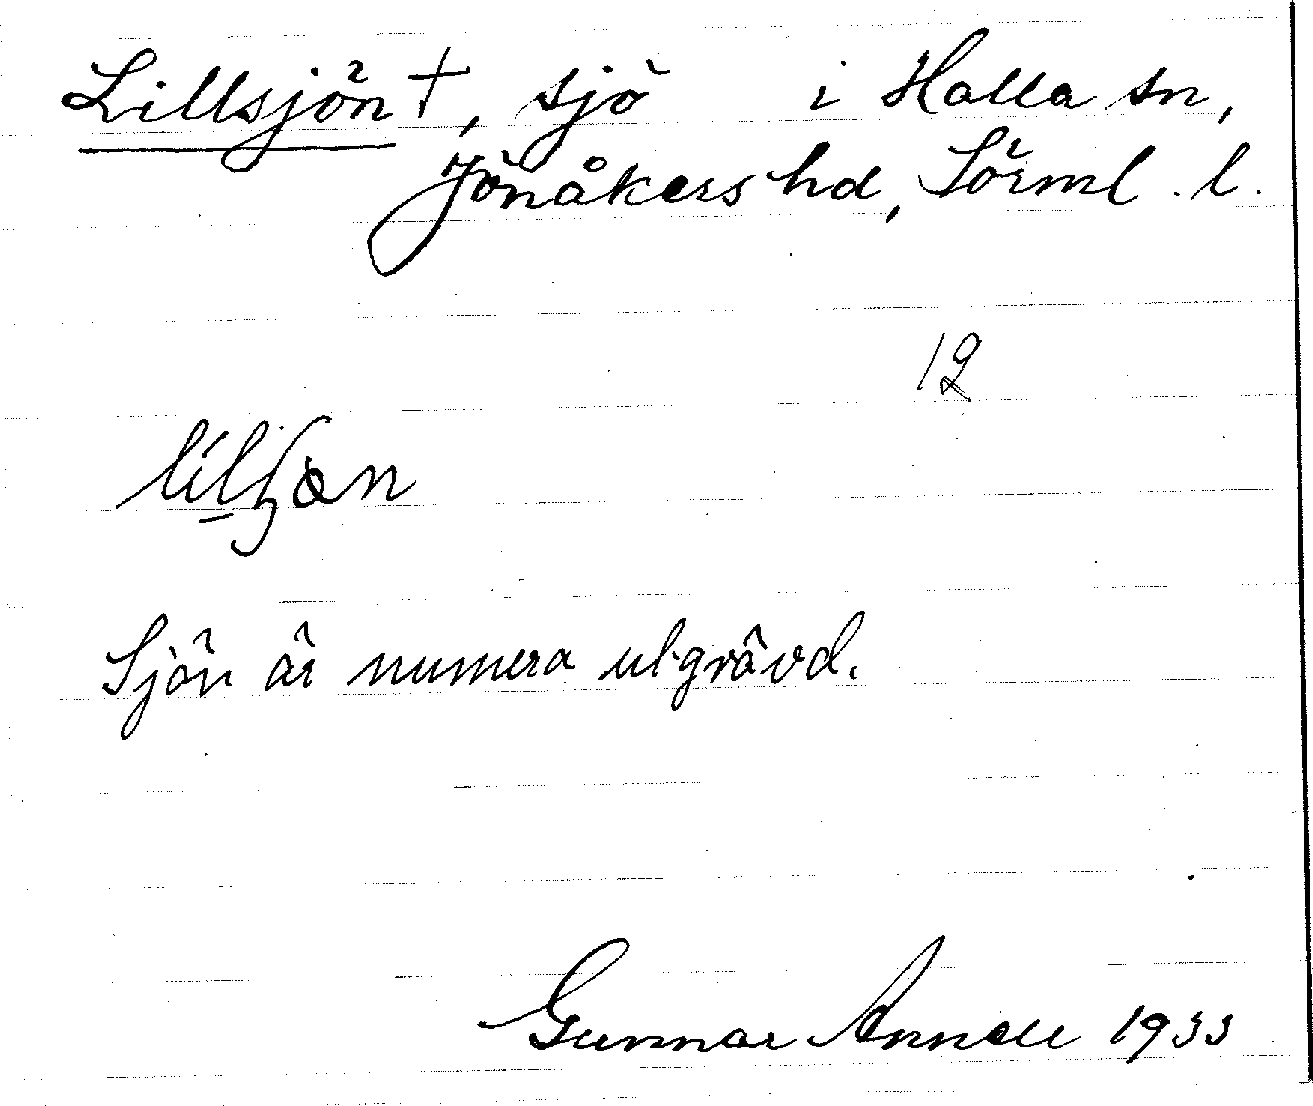 Lillsjön †, sjö i Halla sn,
Jönåkers hd, Sörml. l.
12
Sjön är numera utgrävd.
Gunnar Annell 1933